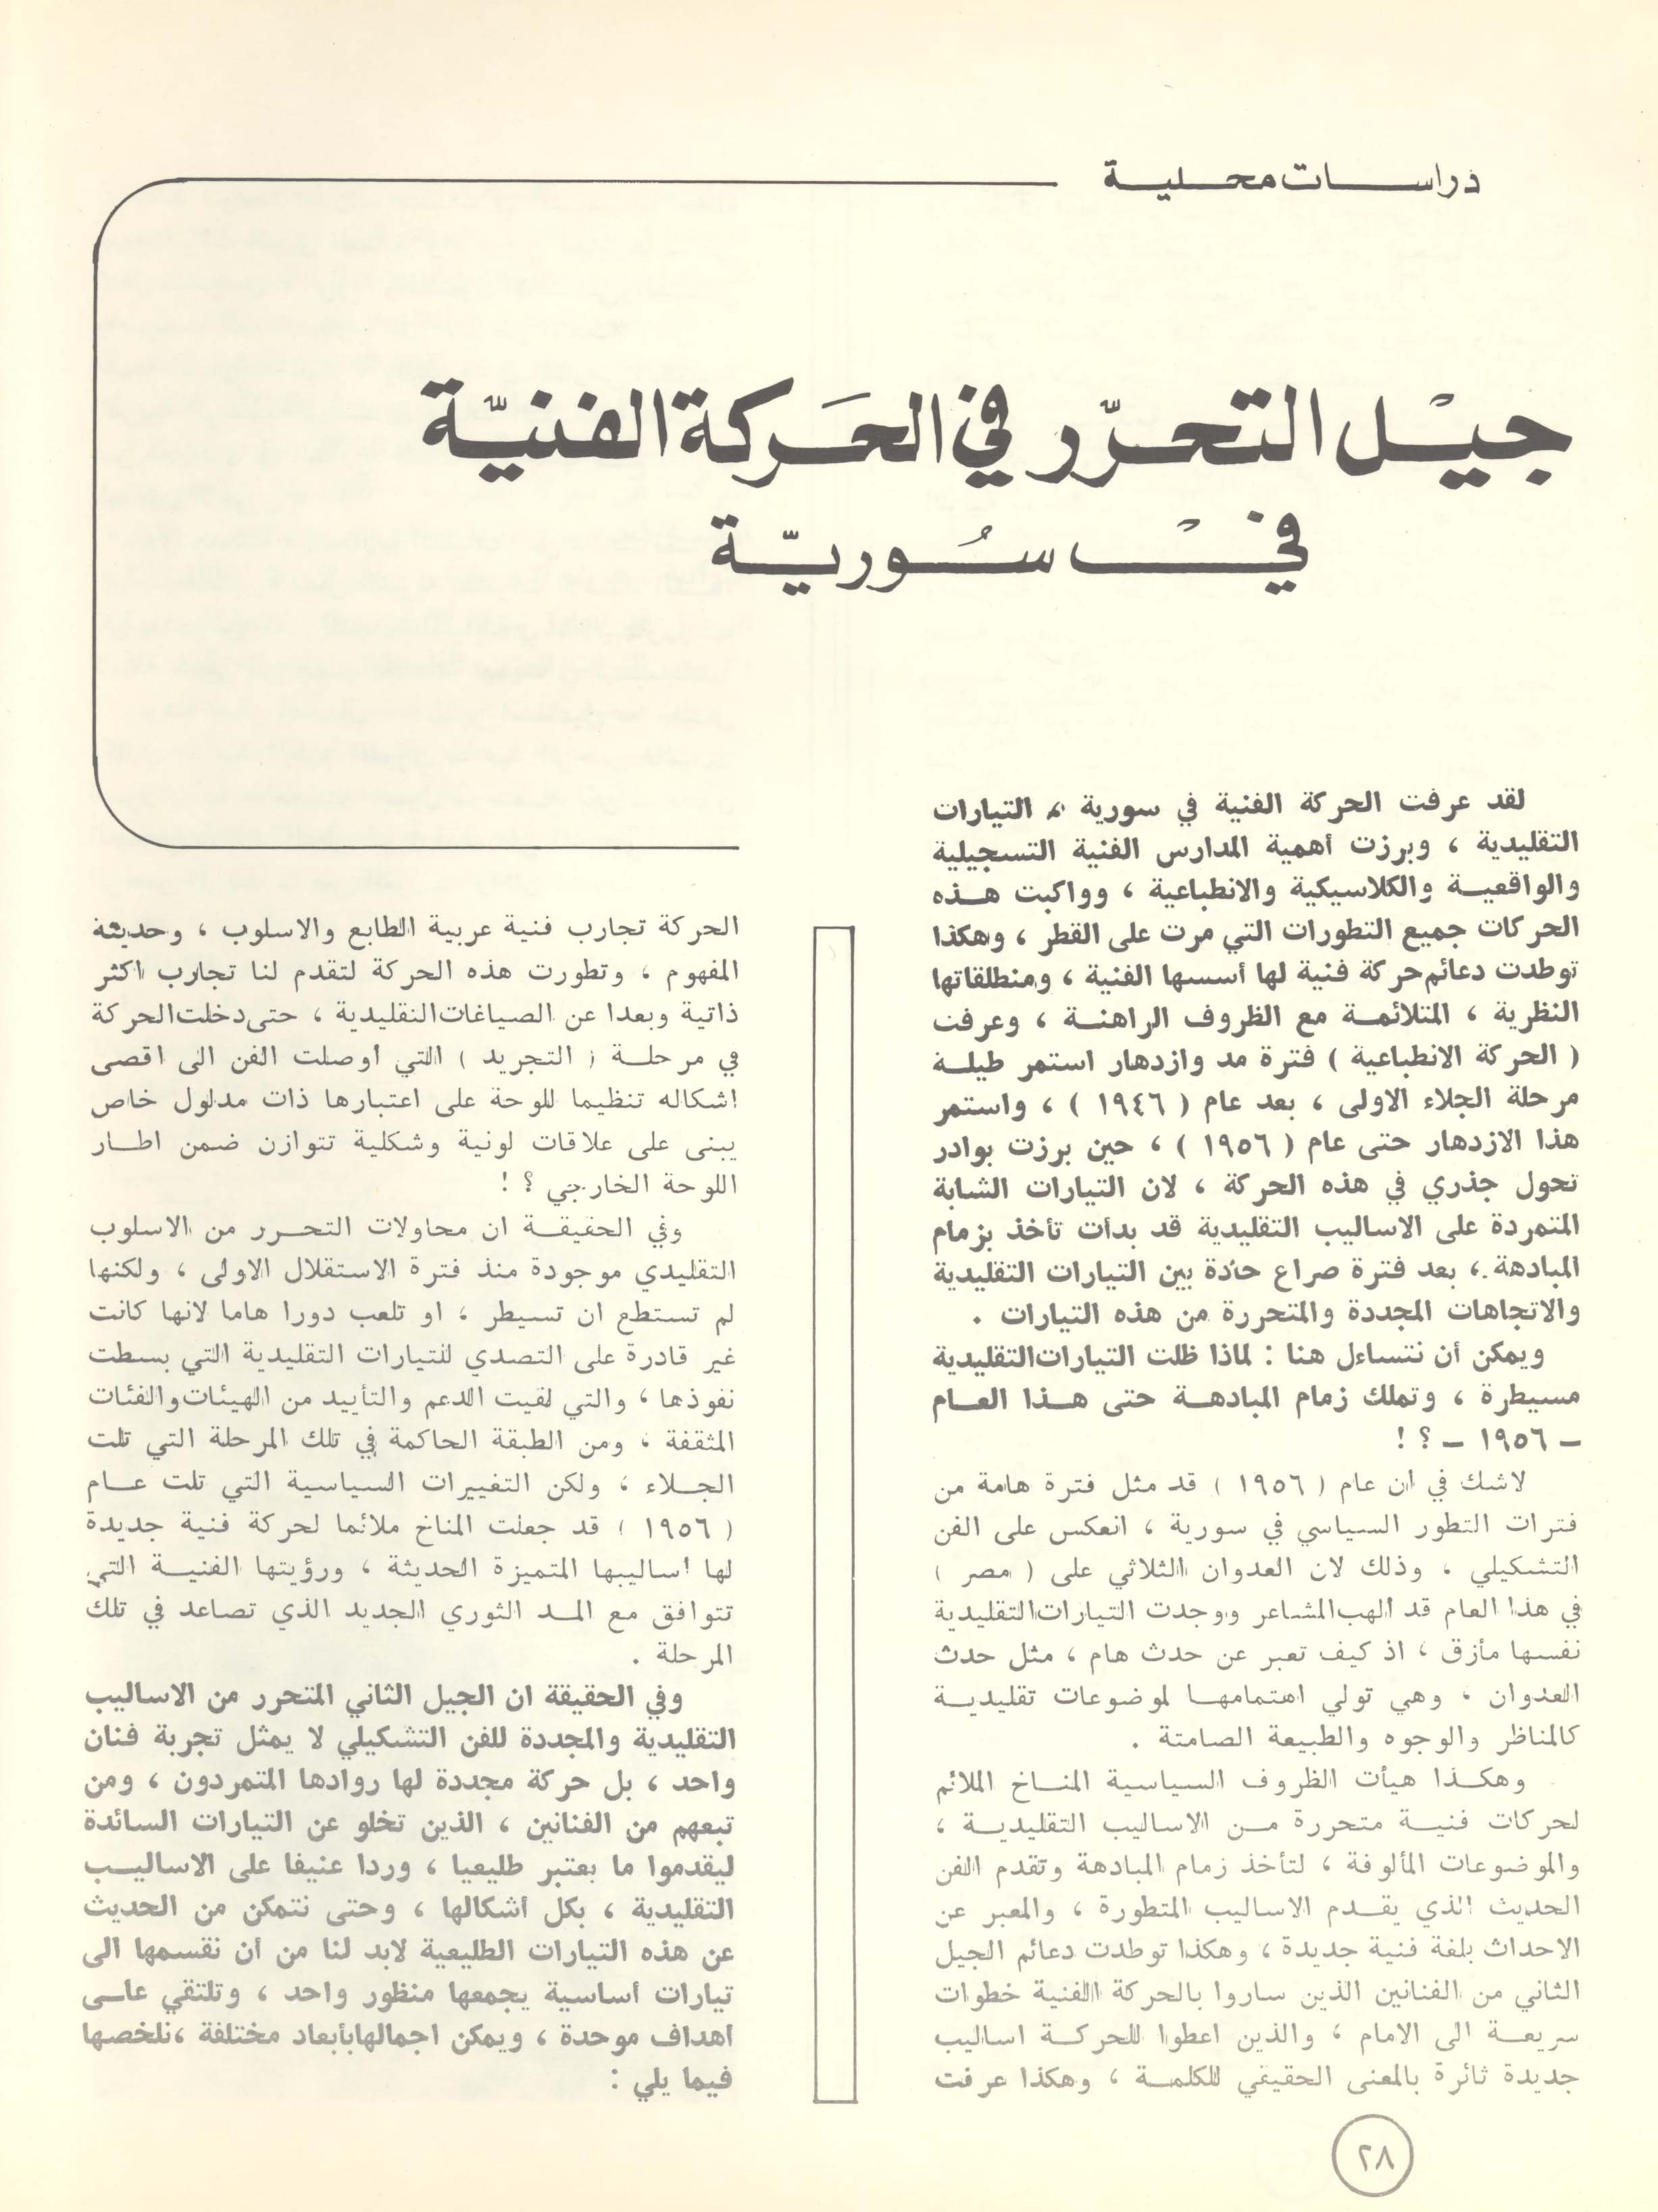 دراسات محلية
جيْل التحرّر في الحَركة الفنيّة
فيْ سُوريّة
لقد عرفت الحركة الفنية في سورية ، التيارات
التقليدية ، وبرزت أهمية المدارس الفنية التسجيلية
والواقعية والكلاسيكية والانطباعية ، وواكبت هذه
الحركات جميع التطورات التي مرت على القطر ، وهكذا
توطدت دعائم حركة فنية لها أسسها الفنية ، ومنطلقاتها
النظرية ، المتلائمة مع الظروف الراهنة ، وعرفت
( الحركة الانطباعية ) فترة مد وازدهار استمر طيلة
مرحلة الجلاء الاولى ، بعد عام ( ١٩٤٦ ) ، واستمر
هذا الازدهار حتى عام ( ١٩٥٦ ) ، حين برزت بوادر
تحول جذري في هذه الحركة ، لان التيارات الشابة
المتمردة على الاساليب التقليدية قد بدأت تأخذ بزمام
المبادهة ، بعد فترة صراع حادة بين التيارات التقليدية
والاتجاهات المجددة والمتحررة من هذه التيارات .
ويمكن أن نتساءل هنا : لماذا ظلت التيارات التقليدية
مسيطرة ، وتملك زمام المبادهة حتى هذا العام
- ١٩٥٦ - ؟ !
لاشك في ان عام ( ١٩٥٦ ) قد مثل فترة هامة من
فترات التطور السياسي في سورية ، انعكس على الفن
التشكيلي ، وذلك لان العدوان الثلاثي على ( مصر )
في هذا العام قد الهب المشاعر ووجدت التيارات التقليدية
نفسها مأزق ، اذ كيف تعبر عن حدث هام ، مثل حدث
العدوان ، وهي تولي اهتمامها لموضوعات تقليدية
كالمناظر والوجوه والطبيعة الصامتة .
وهكذا هيأت الظروف السياسية المناخ الملائم
لحركات فنية متحررة من الاساليب التقليدية ،
والموضوعات المألوفة ، لتأخذ زمام المبادهة وتقدم الفن
الحديث الذي يقدم الاساليب المتطورة ، والمعبر عن
الاحداث بلغة فنية جديدة ، وهكذا توطدت دعائم الجيل
الثاني من الفنانين الذين ساروا بالحركة الفنية خطوات
سريعة الى الامام ، والذين اعطوا للحركة اساليب
جديدة ثائرة بالمعنى الحقيقي للكلمة ، وهكذا عرفت
الحركة تجارب فنية عربية الطابع والاسلوب ، وحديثة
المفهوم ، وتطورت هذه الحركة لتقدم لنا تجارب اكثر
ذاتية وبعدا عن الصياغات التقليدية ، حتى دخلت الحركة
في مرحلة ( التجريد ) التي اوصلت الفن الى اقصى
اشكاله تنظيما للوحة على اعتبارها ذات مدلول خاص
يبنى على علاقات لونية وشكلية تتوازن ضمن اطار
اللوحة الخارجي ؟ !
وفي الحقيقة ان محاولات التحرر من الاسلوب
التقليدي موجودة منذ فترة الاستقلال الاولى ، ولكنها
لم تستطع ان تسيطر ، او تلعب دورا هاما لانها كانت
غير قادرة على التصدي للتيارات التقليدية التي بسطت
نفوذها ، والتي لقيت الدعم والتأييد من الهيئات والفئات
المثقفة ، ومن الطبقة الحاكمة في تلك المرحلة التي تلت
الجلاء ، ولكن التغييرات السياسية التي تلت عام
( ١٩٥٦ ) قد جعلت المناخ ملائما لحركة فنية جديدة
لها اساليبها المتميزة الحديثة ، ورؤيتها الفنية التي
تتوافق مع المد الثوري الجديد الذي تصاعد في تلك
المرحلة .
وفي الحقيقة ان الجيل الثاني المتحرر من الاساليب
التقليدية والمجددة للفن التشكيلي لا يمثل تجربة فنان
واحد ، بل حركة مجددة لها روادها المتمردون ، ومن
تبعهم من الفنانين ، الذين تخلو عن التيارات السائدة
ليقدموا ما يعتبر طليعيا ، وردا عنيفا على الاساليب
التقليدية ، بكل أشكالها ، وحتى نتمكن من الحديث
عن هذه التيارات الطليعية لابد لنا من أن نقسمها الى
تيارات أساسية يجمعها منظور واحد ، وتلتقي على
اهداف موحدة ، ويمكن اجمالها بأبعاد مختلفة ، نلخصها
فيما يلي :
٢٨